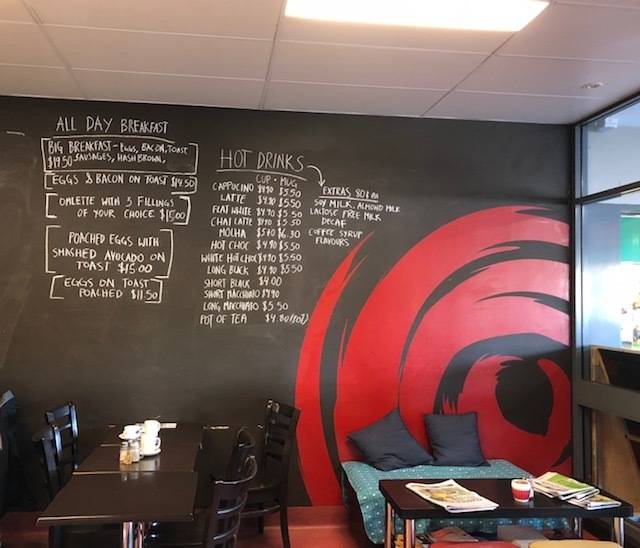 ALL DAY BREAKFAST
BIG BREAKFAST - EGGS, BACON, TOAST
$19.50 SAUSAGES, HASH BROWN,
EGGS & BACON ON TOAST $14.50
OMLETTE WITH 3 FILLINGS
OF YOUR CHOICE $15.00
POACHED EGGS WITH
SMASHED AVOCADO ON
TOAST $15.00
EGGS ON TOAST
POACHED $11.50
HOT DRINKS
CUP · MUG
CAPPUCINO $4.90 $5.50
LATTE $4.90 $5.50
FLAT WHITE $4.90 $5.50
CHAI LATTE $4.90 $5.50
MOCHA $5.40 $6.30
HOT CHOC $4.90 $5.50
WHITE HOT CHOC $4.90 $5.50
LONG BLACK $4.90 $5.50
SHORT BLACK $4.00
SHORT MACCHIATO $4.90
LONG MACCHIATO $5.50
POT OF TEA $4.80 (POT)
EXTRAS 80¢ EA
SOY MILK, ALMOND MILK
LACTOSE FREE MILK
DECAF
COFFEE SYRUP
FLAVOURS